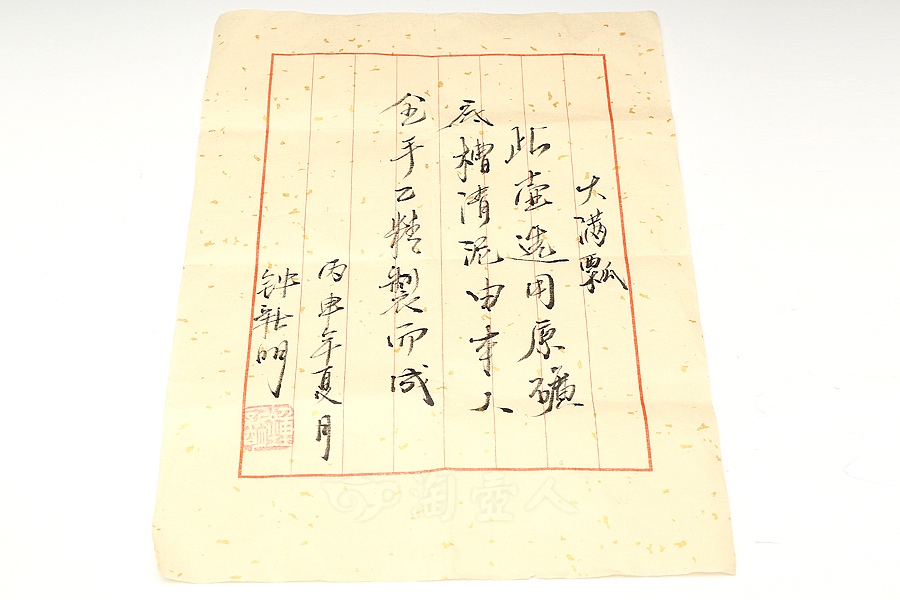 大满瓢
此壶选用原礦
底槽清泥由本人
全手工精製而成
丙申年夏月
钟
明
淘壶人